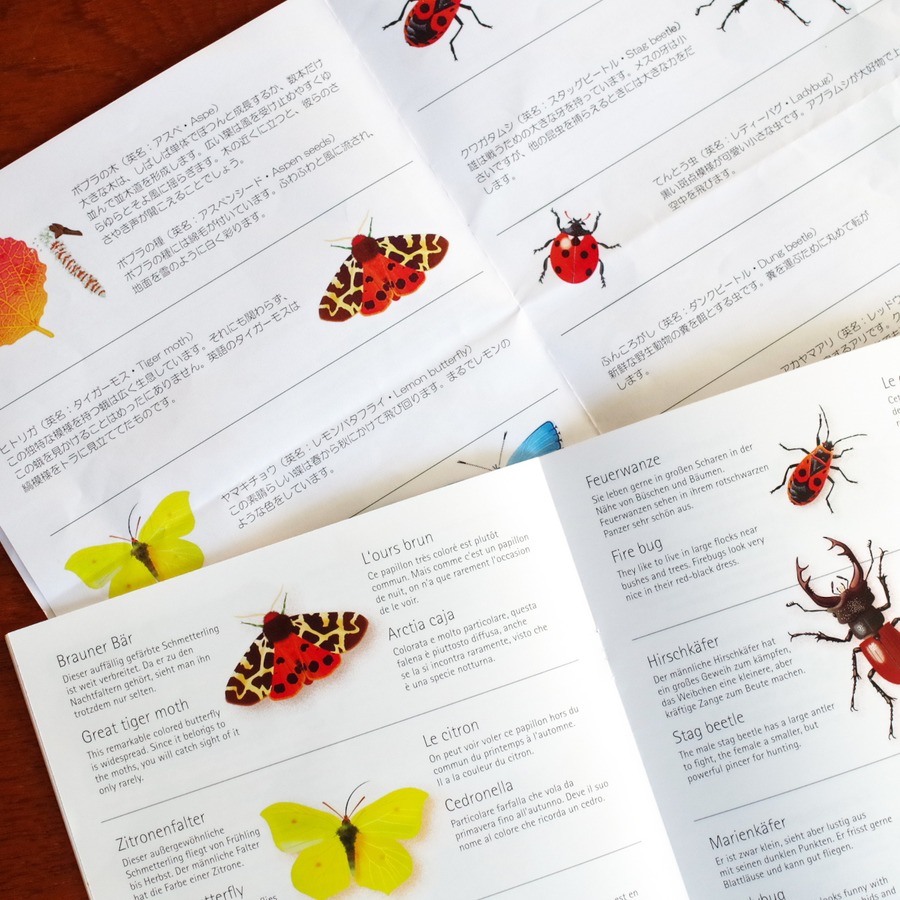 ポプラの木（英名：アスペ・Aspe）
大きな木は、しばしば単体でぽつんと成長するか、数本だけ
並んで並木道を形成します。広い葉は風を受け止めやすくゆ
らゆらとそよ風に揺らぎます。木の近くに立つと、彼らのさ
さやき声が聞こえることでしょう。
ポプラの種（英名：アスペンシード・Aspen seeds）
ポプラの種には綿毛が付いています。ふわふわと風に流され、
地面を雪のように白く彩ります。
ヒトリガ（英名：タイガーモス・Tiger moth）
この独特な模様を持つ蛾は広く生息しています。それにも関わらず、
この蛾を見かけることはめったにありません。英語のタイガーモスは
縞模様をトラに見立ててたものです。
ヤマキチョウ（英名：レモンバタフライ・Lemon butterfly）
この素晴らしい蝶は春から秋にかけて飛び回ります。まるでレモンの
ような色をしています。
クワガタムシ（英名：スタッグビートル・Stag beetle）
雄は戦うための大きな牙を持っています。メスの牙は小
さいですが、他の昆虫を捕らえるときには大きな力をだ
します。
てんとう虫（英名：レディーバグ・Ladybug）
黒い斑点模様が可愛い小さな虫です。アブラムシが大好物で上
空中を飛びます。
ふんころがし（英名：ダンクビートル・Dung beetle）
新鮮な野生動物の糞を餌とする虫です。糞を運ぶために丸めて転が
します。
アカヤマアリ（英名：レッドウ
Brauner Bär
Dieser auffällig gefärbte Schmetterling
ist weit verbreitet. Da er zu den
Nachtfaltern gehört, sieht man ihn
trotzdem nur selten.
Great tiger moth
This remarkable colored butterfly
is widespread. Since it belongs to
the moths, you will catch sight of it
only rarely.
L'ours brun
Ce papillon très coloré est plutôt
commun. Mais comme c'est un papillon
de nuit, on n'a que rarement l'occasion
de le voir.
Arctia caja
Colorata e molto particolare, questa
falena è piuttosto diffusa, anche
se la si incontra raramente, visto che
è una specie notturna.
Zitronenfalter
Dieser außergewöhnliche
Schmetterling fliegt von Frühling
bis Herbst. Der männliche Falter
hat die Farbe einer Zitrone.
Le citron
On peut voir voler ce papillon hors du
commun du printemps à l'automne.
Il a la couleur du citron.
Cedronella
Particolare farfalla che vola da
primavera fino all'autunno. Deve il suo
nome al colore che ricorda un cedro.
Feuerwanze
Sie leben gerne in großen Scharen in der
Nähe von Büschen und Bäumen.
Feuerwanzen sehen in ihrem rotschwarzen
Panzer sehr schön aus.
Fire bug
They like to live in large flocks near
bushes and trees. Firebugs look very
nice in their red-black dress.
Hirschkäfer
Der männliche Hirschkäfer hat
ein großes Geweih zum kämpfen,
das Weibchen eine kleinere, aber
kräftige Zange zum Beute machen.
Stag beetle
The male stag beetle has a large antler
to fight, the female a smaller, but
powerful pincer for hunting.
Marienkäfer
Er ist zwar klein, sieht aber lustig aus
mit seinen dunklen Punkten. Er frisst gerne
Blattläuse und kann gut fliegen.
looks funny with